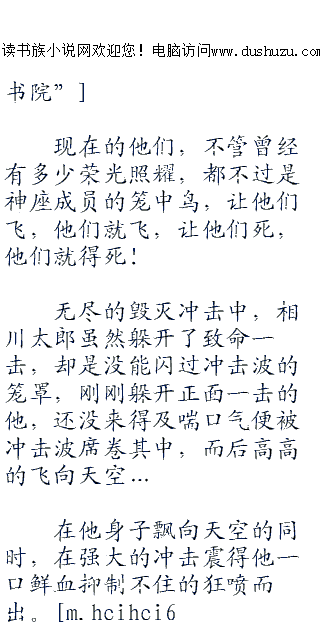 读书族小说网欢迎您！电脑访问www.dushuzu.com
书院”]
现在的他们，不管曾经
有多少荣光照耀，都不过是
神座成员的笼中鸟，让他们
飞，他们就飞，让他们死，
他们就得死！
无尽的毁灭冲击中，相
川太郎虽然躲开了致命一
击，却是没能闪过冲击波的
笼罩，刚刚躲开正面一击的
他，还没来得及喘口气便被
冲击波席卷其中，而后高高
的飞向天空…
在他身子飘向天空的同
时，在强大的冲击震得他一
口鲜血抑制不住的狂喷而
出。[m.hcihci6